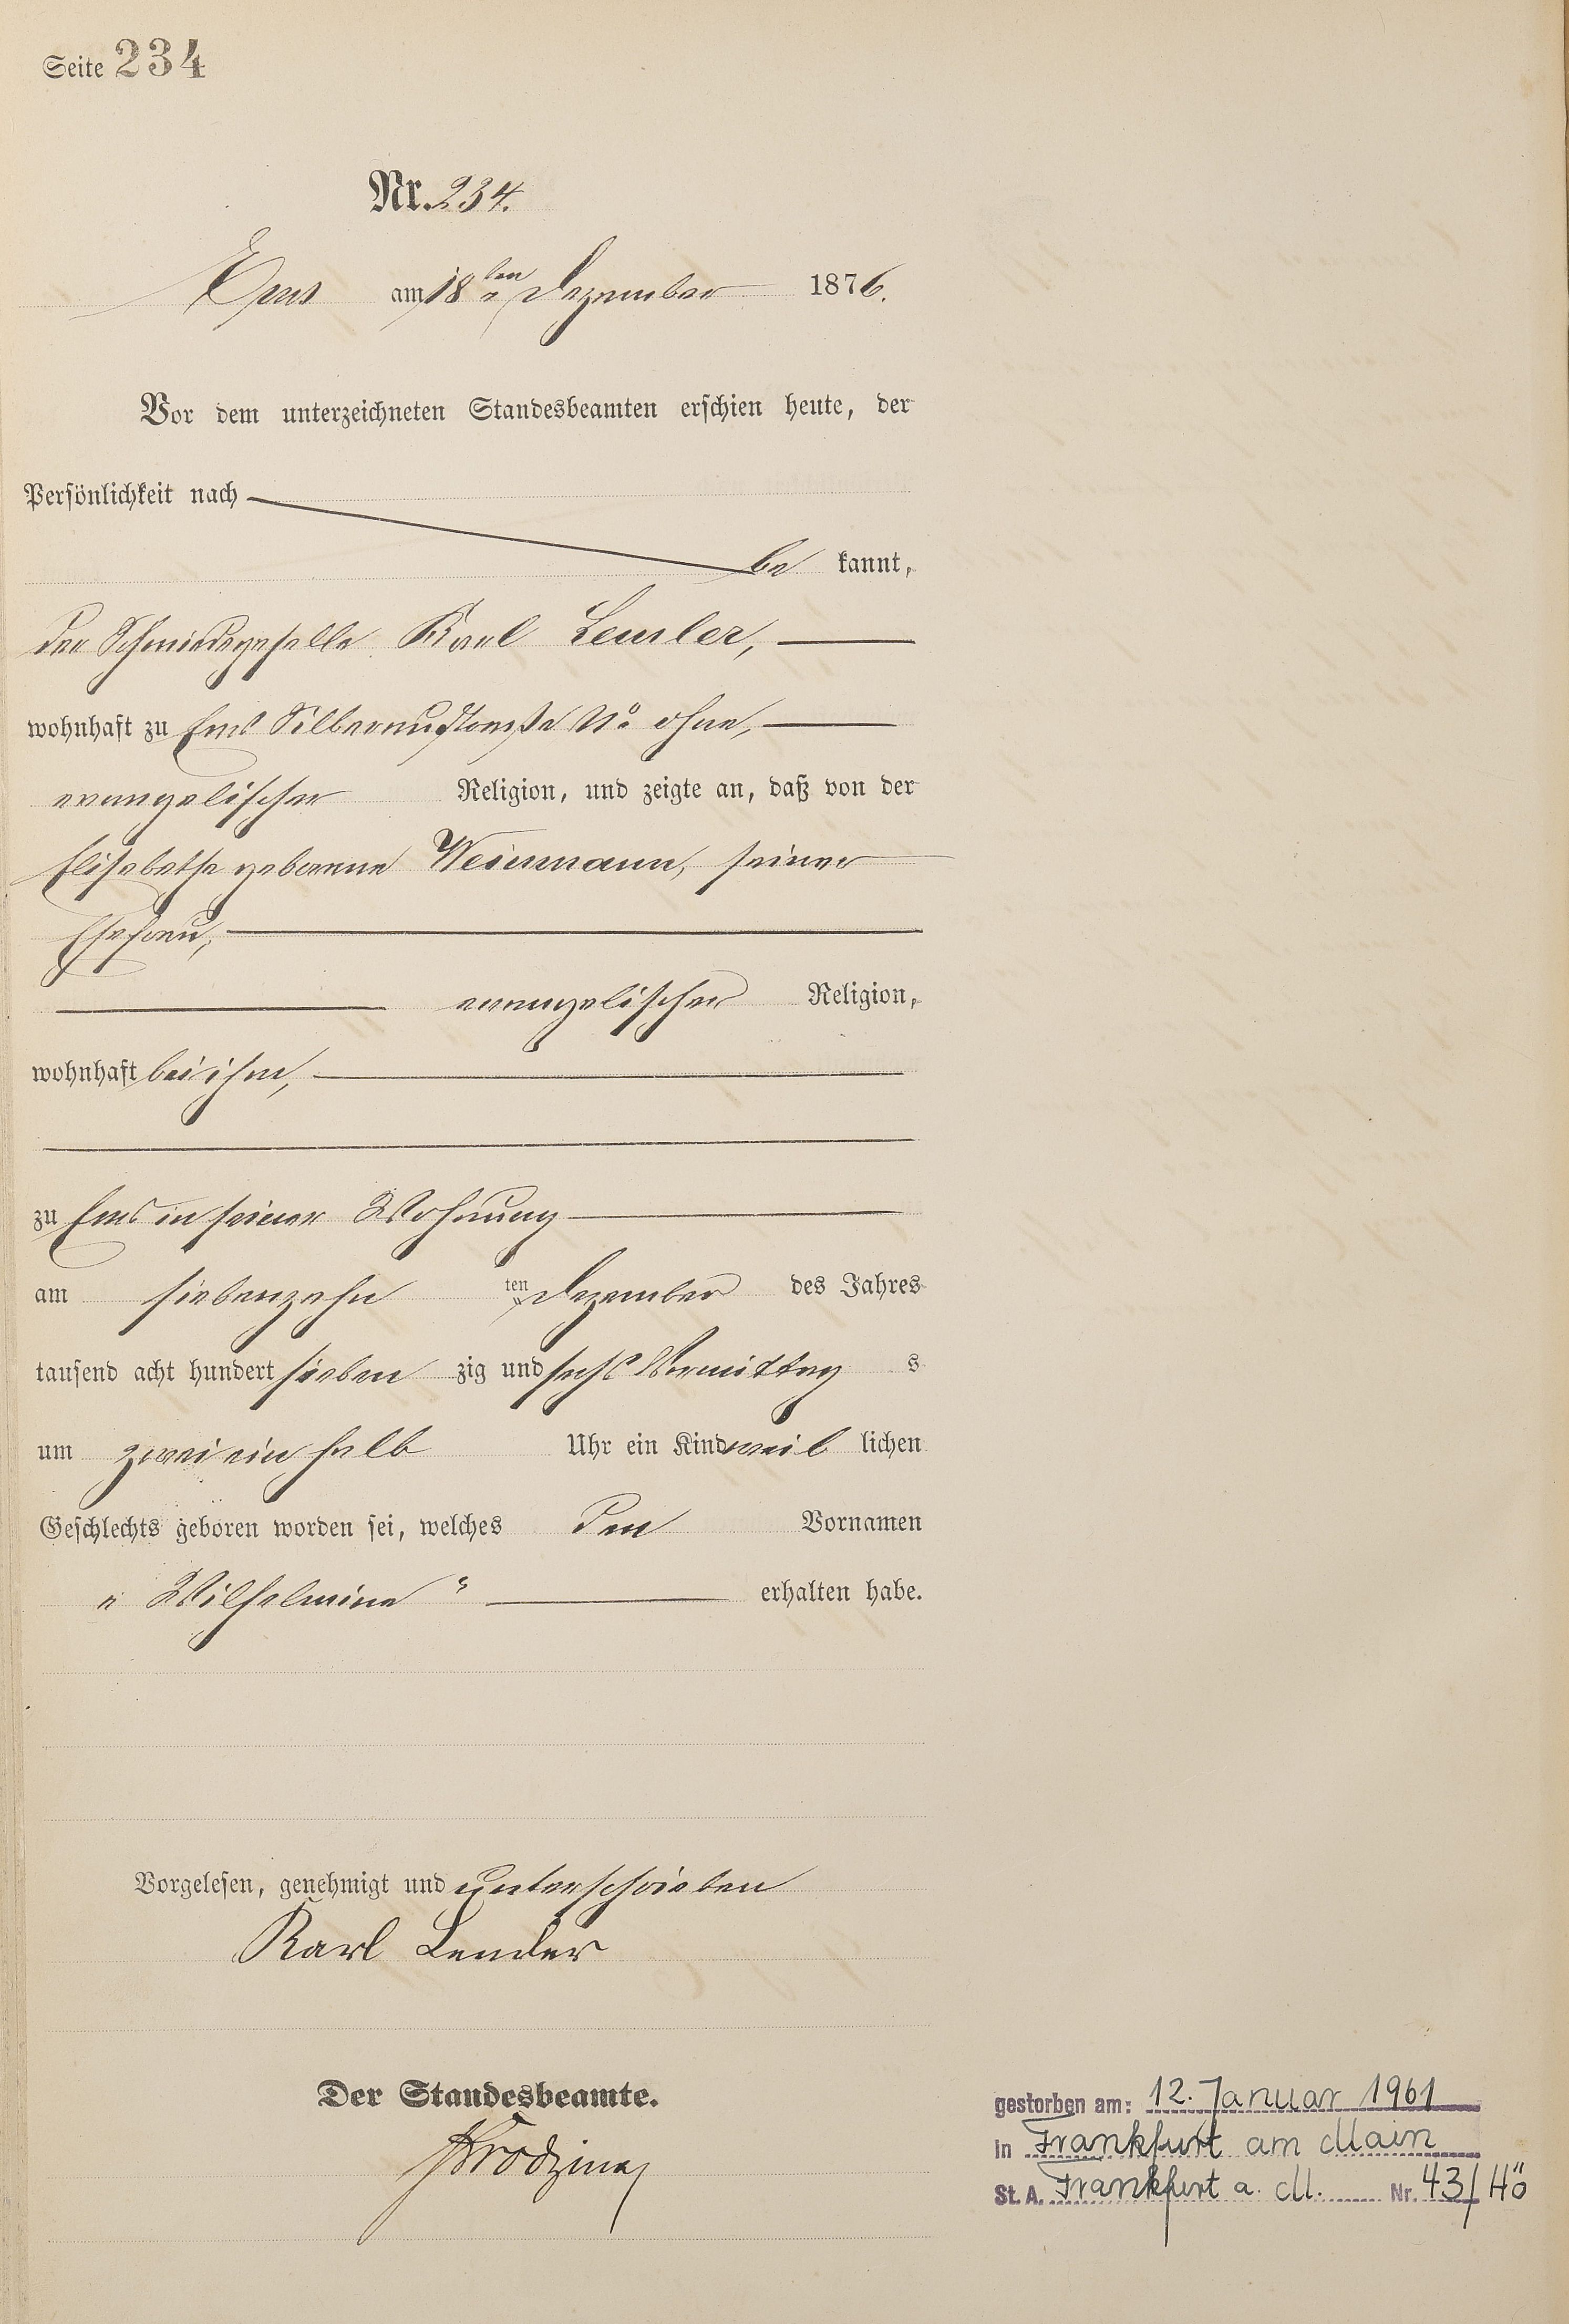 Seite 234
Nr. 234.
Ems am 18ten Dezember 1876.
Vor dem unterzeichneten Standesbeamten erschien heute, der
Persönlichkeit nach
be kannt,
der Schmiedegeselle Karl
wohnhaft zu Ems Silberaustraße No ohne,
evangelischer Religion, und zeigte an, daß von der
Elisabethe geborene Weinmann, seiner
Ehefrau,
evangelischer Religion,
wohnhaft bei ihm,
zu Ems in seiner Wohnung
am siebenzehn ten Dezember des Jahres
tausend acht hundert sieben zig und sechs Vormittag s
um zwei ein halb Uhr ein Kind weib lichen
Geschlechts geboren worden sei, welches den Vornamen
„Wilhelmine“ erhalten habe.
Vorgelesen, genehmigt und unterschrieben
Karl Lender
Der Standesbeamte.
gestorben am: 12. Januar 1961
in Frankfurt am Main
St. A. Frankfurt a. M. Nr. 43/Hö